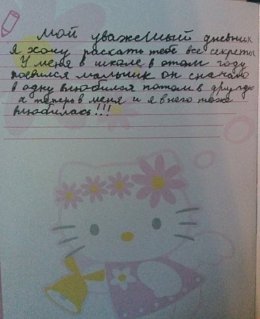 Мой уважемый дневник
я хочу рассать тебе все секреты
У меня в школе в этом году
появился мальчик он сначало
в одну влюбился потом в другую
а теперь в меня и я в него тоже
влюбилась!!!